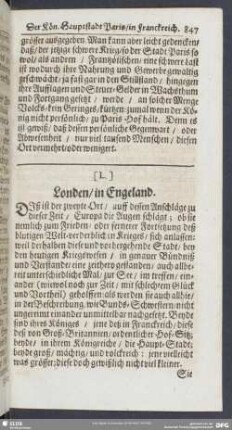 Der Kön. Hauptstadt Paris / in Franckreich. 847
grösser ausgegeben. Man kann aber leicht gedencken /
daß / der jetzige schwere Krieg / so der Stadt Paris so
wol / als andern / Frantzösischen / eine schwere Last
ist / wodurch ihre Nahrung und Gewerbe gewaltig
geschwächt / ja fast gar in den Stillstand / hingegen
ihre Aufflagen und Steuer-Gelder in Wachsthum
und Fortgang gesetzt / werde / an solcher Menge
Volcks / ein Geringes kürtzen: zumal wenn der Kö-
nig nicht persönlich / zu Paris / Hof hält. Denn es
ist gewiß / daß dessen persönliche Gegenwart / oder
Abwesenheit / nur viel tausend Menschen / diesen
Ort vermehrt / oder wenigert.
[L.]
Londen / in Engeland.
DIß ist der zweyte Ort / auff dessen Anschläge zu
dieser Zeit / Europa die Augen schlägt; ob sie
nemlich zum Frieden / oder fernerer Fortsetzung deß
blutigen Welt-verderblichen Krieges / sich anlassen:
weil derhalben diese und vorhergehende Stadt / bey
den heutigen Kriegswesen / in genauer Bündniß
und Verstande / eine zeithero gestanden / auch allbe-
reit unterschiedliche Mal / zur See / im treffen / ein-
ander (wiewol noch zur Zeit / mit schlechtem Glück
und Vortheil) geholffen: als werden sie auch allhie /
in der Beschreibung / wie Bunds-Schwestern / nicht
ungereimt einander unmittelbar nachgesetzt. Beyde
sind ihres Königes / jene deß in Franckreich / diese
deß von Groß-Britannien / ordentlicher Hof-Sitz:
beyde / in ihrem Königreiche / die Haupt-Stadt:
beyde groß / mächtig / und volckreich: jene vielleicht
was grösser; diese doch gewißlich nicht viel kleiner.
Sie